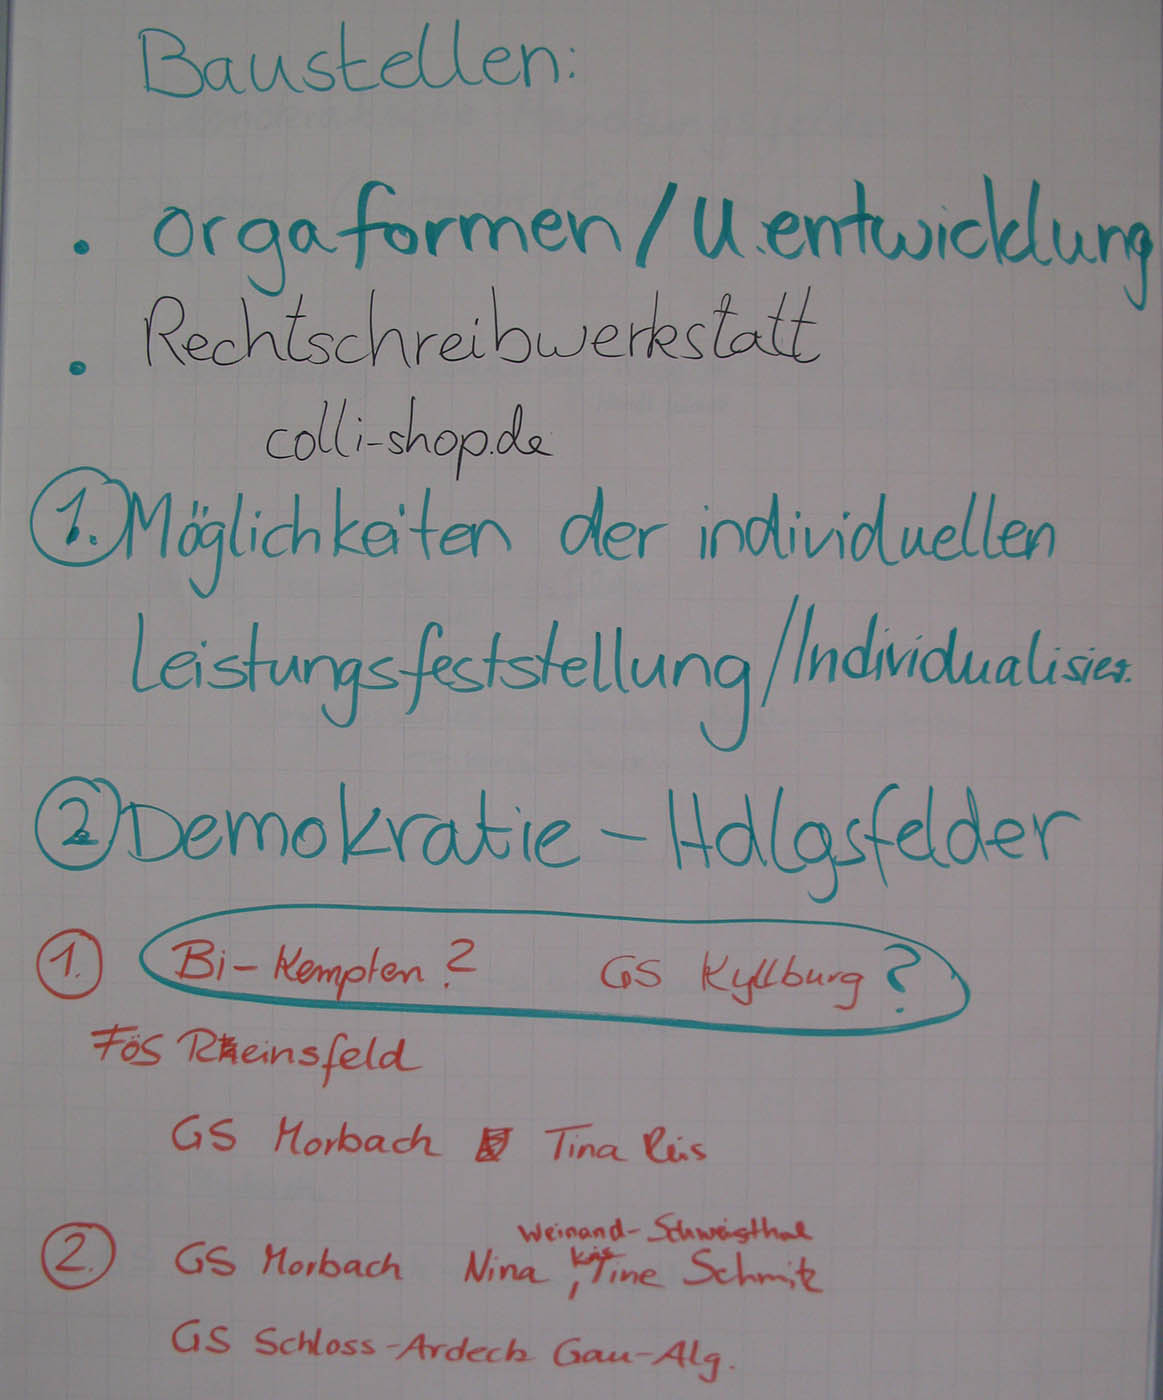 Baustellen:
• Orgaformen / U.entwicklung
• Rechtschreibwerkstatt
colli-shop.de
1. Möglichkeiten der individuellen
Leistungsfeststellung / Individualisier.
2. Demokratie - Hdlgsfelder
1. Bi-Kempten? GS Kyllburg?
Fös Reinsfeld
GS Morbach Tina Reis
Weinand-Schweisthal
2. GS Morbach Nina, Tine Schmitz
GS Schloss-Ardeck Gau-Alg.